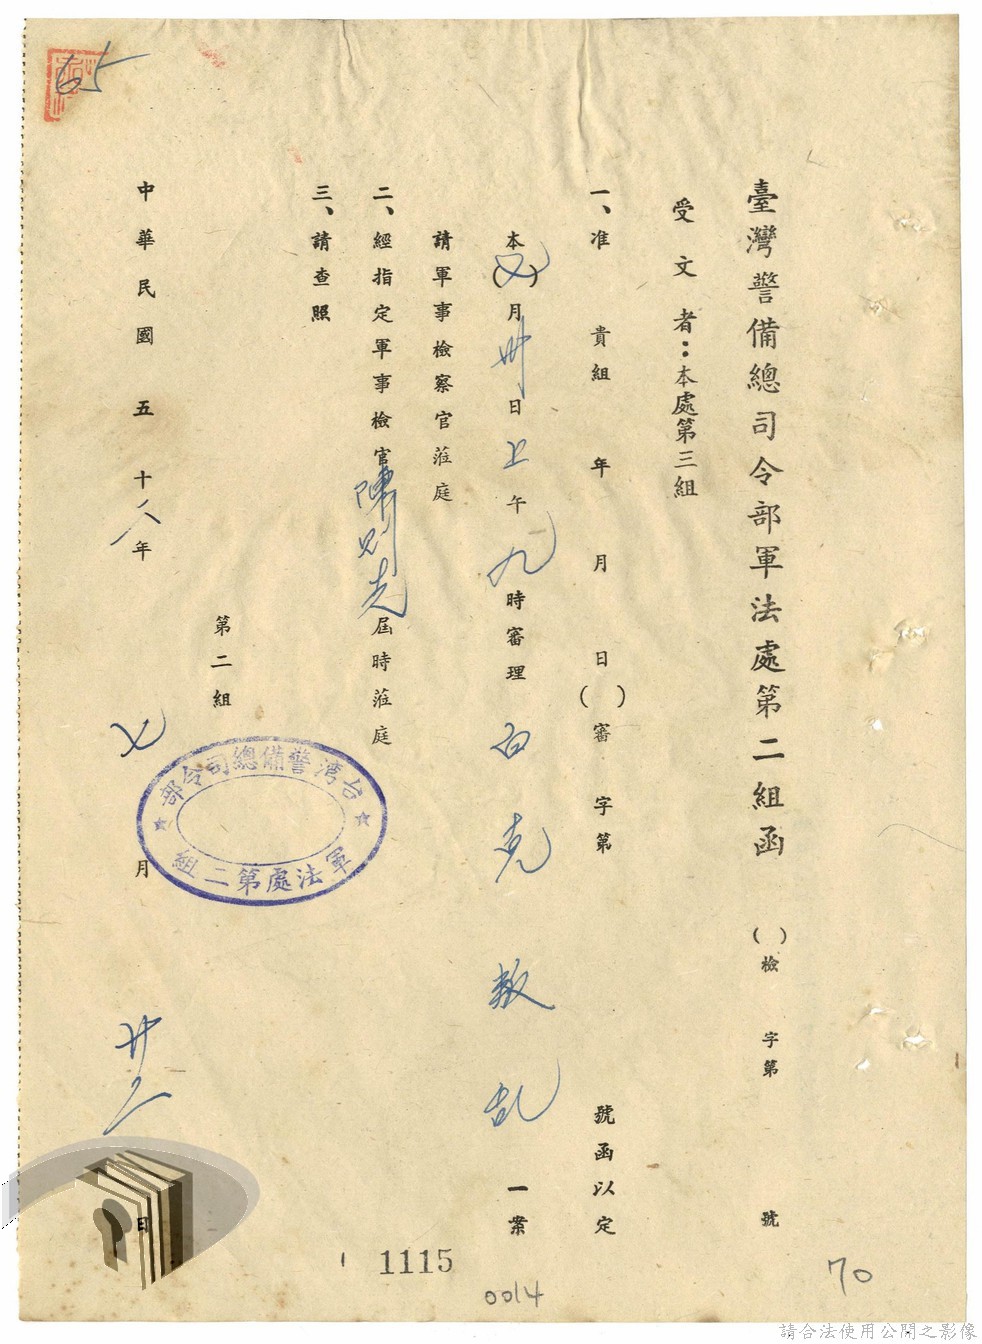 臺灣警備總司令部軍法處第二組函 ( )檢 字第 號
受文者：本處第三組
一、准 貴組 年 月 日( )審 字第 號函以定
本(七)月卅日上午九時審理白克叛乱一案
請軍事檢察官蒞庭
二、經指定軍事檢官陳則先屆時蒞庭
三、請查照
第二組
台灣警備總司令部
軍法處第二組
中華民國五十八年七月廿二日
65
1115
0014
70
請合法使用公開之影像